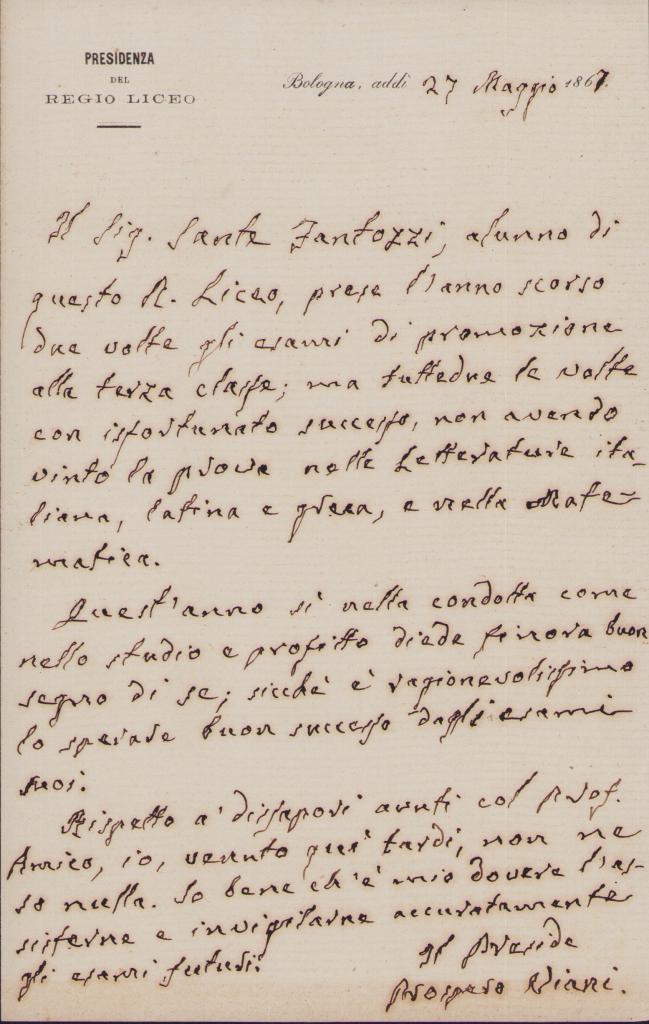 PRESIDENZA
DEL
REGIO LICEO
Bologna, addì 27 Maggio 1867.
Il Sig. Sante Fantozzi, alunno di
questo R. Liceo, prese l'anno scorso
due volte gli esami di promozione
alla terza classe; ma tuttedue le volte
con isfortunato successo, non avendo
vinto la prova nelle Letterature ita-
liana, latina e greca, e nella Mate-
matica.
Quest'anno sì nella condotta come
nello studio e profitto diede finora buon
segno di se; sicchè è ragionevolissimo
lo sperare buon successo dagli esami
suoi.
Rispetto a' dissapori avuti col Prof.
Amico, io, venuto qua tardi, non ne
so nulla. So bene ch'è mio dovere l'as-
sisterne e invigilarne accuratamente
gli esami futuri.
Il Preside
Prospero Viani.